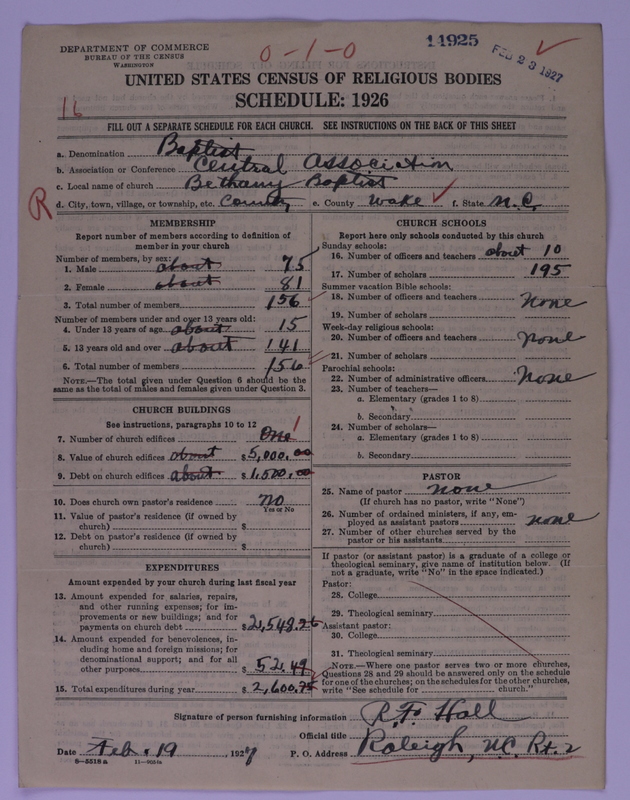 DEPARTMENT OF COMMERCE
BUREAU OF THE CENSUS
WASHINGTON
0-1-0
14925
FEB 23 1927
UNITED STATES CENSUS OF RELIGIOUS BODIES
SCHEDULE: 1926
16
FILL OUT A SEPARATE SCHEDULE FOR EACH CHURCH. SEE INSTRUCTIONS ON THE BACK OF THIS SHEET
a. Denomination Baptist
b. Association or Conference Central Association
c. Local name of church Bethany Baptist
R
d. City, town, village, or township, etc. County e. County Wake f. State N.C.
MEMBERSHIP
Report number of members according to definition of
member in your church
Number of members, by sex:
1. Male about 75
2. Female about 81
3. Total number of members 156
Number of members under and over 13 years old:
4. Under 13 years of age about 15
5. 13 years old and over about 141
6. Total number of members 156
NOTE.—The total given under Question 6 should be the
same as the total of males and females given under Question 3.
CHURCH BUILDINGS
See instructions, paragraphs 10 to 12
7. Number of church edifices One 1
8. Value of church edifices about $5,000.00
9. Debt on church edifices about $1,500.00
10. Does church own pastor's residence? No
Yes or No
11. Value of pastor's residence (if owned by
church) $
12. Debt on pastor's residence (if owned by
church) $
EXPENDITURES
Amount expended by your church during last fiscal year
13. Amount expended for salaries, repairs,
and other running expenses; for im-
provements or new buildings; and for
payments on church debt $2,548.26
14. Amount expended for benevolences, in-
cluding home and foreign missions; for
denominational support; and for all
other purposes $52.49
15. Total expenditures during year $2,600.75
CHURCH SCHOOLS
Report here only schools conducted by this church
Sunday schools:
16. Number of officers and teachers about 10
17. Number of scholars 195
Summer vacation Bible schools:
18. Number of officers and teachers None
19. Number of scholars
Week-day religious schools:
20. Number of officers and teachers None
21. Number of scholars
Parochial schools:
22. Number of administrative officers None
23. Number of teachers—
a. Elementary (grades 1 to 8)
b. Secondary
24. Number of scholars—
a. Elementary (grades 1 to 8)
b. Secondary
PASTOR
25. Name of pastor none
(If church has no pastor, write "None")
26. Number of ordained ministers, if any, em-
ployed as assistant pastors none
27. Number of other churches served by the
pastor or his assistants
If pastor (or assistant pastor) is a graduate of a college or
theological seminary, give name of institution below. (If
not a graduate, write "No" in the space indicated.)
Pastor:
28. College
29. Theological seminary
Assistant pastor:
30. College
31. Theological seminary
NOTE.—Where one pastor serves two or more churches,
Questions 28 and 29 should be answered only on the schedule
for one of the churches; on the schedules for the other churches,
write "See schedule for church."
Signature of person furnishing information R.F. Hall
Official title
Date Feb. 19 1927 P. O. Address Raleigh, N.C. Rt. 2
8-5518a